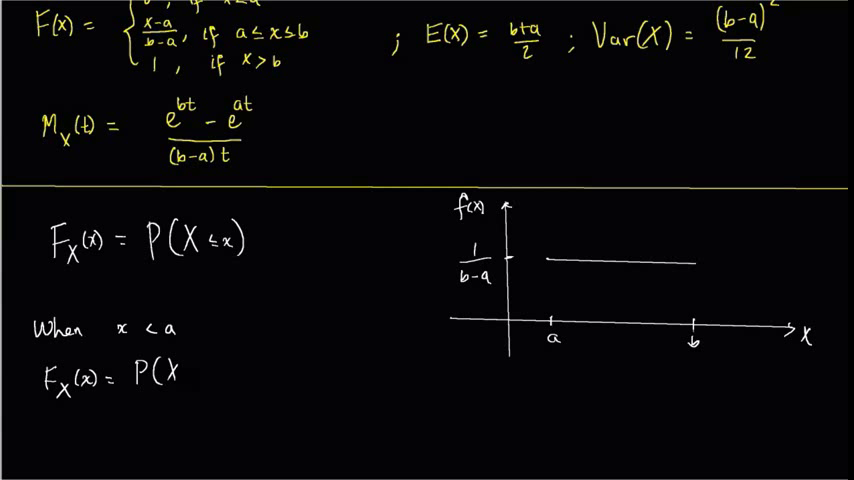 F(x) = { 0, if x<a
x-a/b-a, if a≤x≤b
1, if x>b
; E(X) = b+a/2 ; Var(X) = (b-a)²/12
M_X(t) = e^bt - e^at / (b-a)t
F_X(x) = P(X ≤ x)
When x < a
F_X(x) = P(X
f(x)
1/b-a
a
b
X